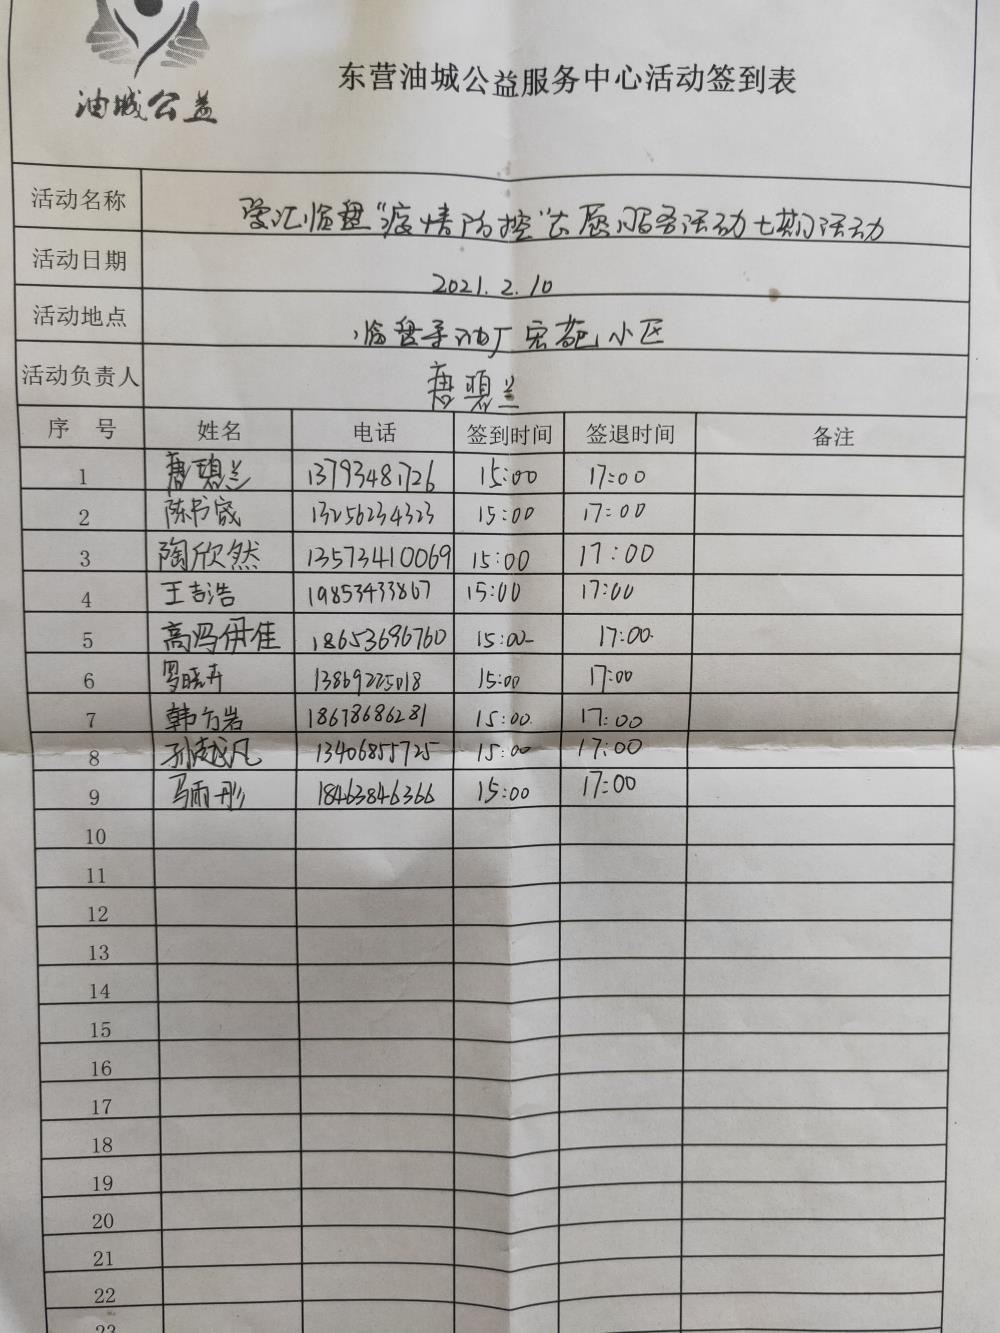 油城公益
东营油城公益服务中心活动签到表
活动名称 爱汇临盘“疫情防控”志愿服务活动七期活动
活动日期 2021.2.10
活动地点 临盘采油厂宏苑小区
活动负责人 唐碧兰
序 号 姓名 电话 签到时间 签退时间 备注
1 唐碧兰 13793481726 15:00 17:00
2 陈书宬 13256234323 15:00 17:00
3 陶欣然 13573410069 15:00 17:00
4 王吉浩 19853433867 15:00 17:00
5 高冯伊佳 18653696760 15:00 17:00
6 罗晓卉 13869225018 15:00 17:00
7 韩 岩 18678686281 15:00 17:00
8 孙越凡 13406855725 15:00 17:00
9 马雨彤 18463846366 15:00 17:00
10
11
12
13
14
15
16
17
18
19
20
21
22
23